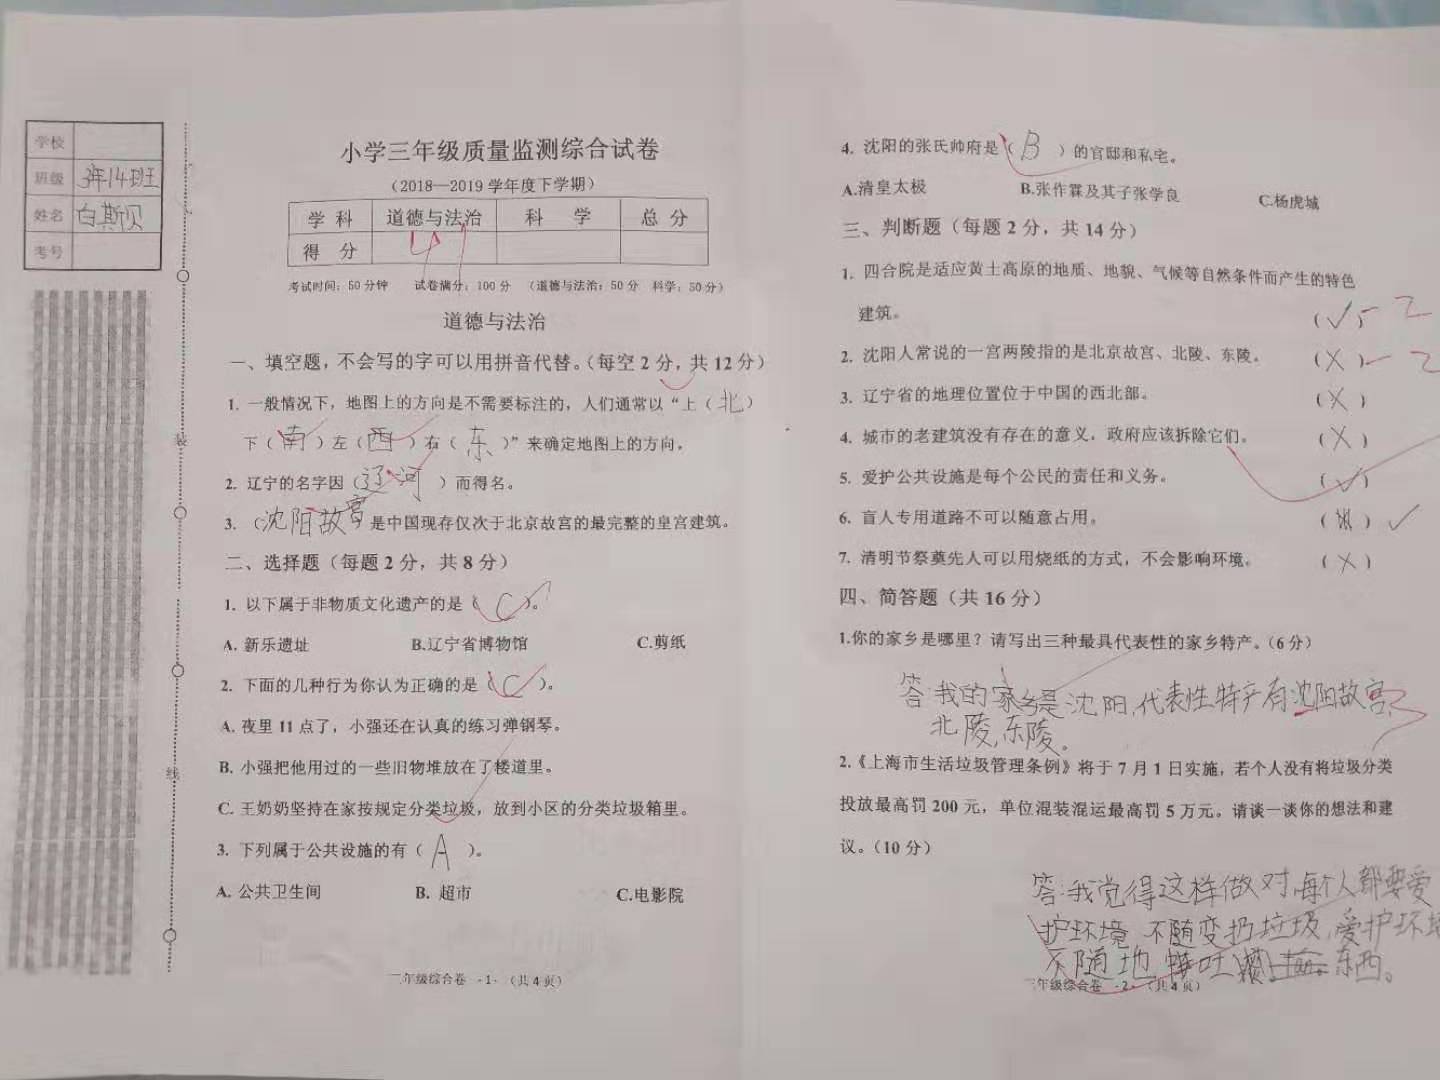 学校
班级 3年14班
姓名 白斯贝
考号
装
线
小学三年级质量监测综合试卷
（2018—2019 学年度下学期）
学 科 道德与法治 科 学 总 分
得 分
考试时间：50 分钟 试卷满分：100 分 （道德与法治：50 分 科学：50 分）
道德与法治
一、填空题，不会写的字可以用拼音代替。（每空 2 分，共 12 分）
1. 一般情况下，地图上的方向是不需要标注的，人们通常以“上（ 北 ）
下（ 南 ）左（ 西 ）右（ 东 ）”来确定地图上的方向，
2. 辽宁的名字因（ 辽河 ）而得名。
3. （沈阳故宫 是中国现存仅次于北京故宫的最完整的皇宫建筑。
二、选择题（每题 2 分，共 8 分）
1. 以下属于非物质文化遗产的是（ C ）。
A. 新乐遗址 B.辽宁省博物馆 C.剪纸
2. 下面的几种行为你认为正确的是（ C ）。
A. 夜里 11 点了，小强还在认真的练习弹钢琴。
B. 小强把他用过的一些旧物堆放在了楼道里。
C. 王奶奶坚持在家按规定分类垃圾，放到小区的分类垃圾箱里。
3. 下列属于公共设施的有（ A ）。
A. 公共卫生间 B. 超市 C.电影院
三年级综合卷 - 1 - （共 4 页）
4. 沈阳的张氏帅府是（ B ）的官邸和私宅。
A.清皇太极 B.张作霖及其子张学良 C.杨虎城
三、判断题（每题 2 分，共 14 分）
1. 四合院是适应黄土高原的地质、地貌、气候等自然条件而产生的特色
建筑。 （ √ ） - 2
2. 沈阳人常说的一宫两陵指的是北京故宫、北陵、东陵。 （ X ） - 2
3. 辽宁省的地理位置位于中国的西北部。 （ X ）
4. 城市的老建筑没有存在的意义，政府应该拆除它们。 （ X ）
5. 爱护公共设施是每个公民的责任和义务。 （ √ ）
6. 盲人专用道路不可以随意占用。 （ ） √
7. 清明节祭奠先人可以用烧纸的方式，不会影响环境。 （ X ）
四、简答题（共 16 分）
1.你的家乡是哪里？请写出三种最具代表性的家乡特产。（6 分）
答：我的家乡是沈阳，代表性特产有沈阳故宫，
北陵，东陵。
2.《上海市生活垃圾管理条例》将于 7 月 1 日实施，若个人没有将垃圾分类
投放最高罚 200 元，单位混装混运最高罚 5 万元。请谈一谈你的想法和建
议。（10 分）
答：我觉得这样做对，每个人都要爱
护环境，不随变扔垃圾，爱护环境
不随地 吐 东西。
三年级综合卷 - 2 - （共 4 页）